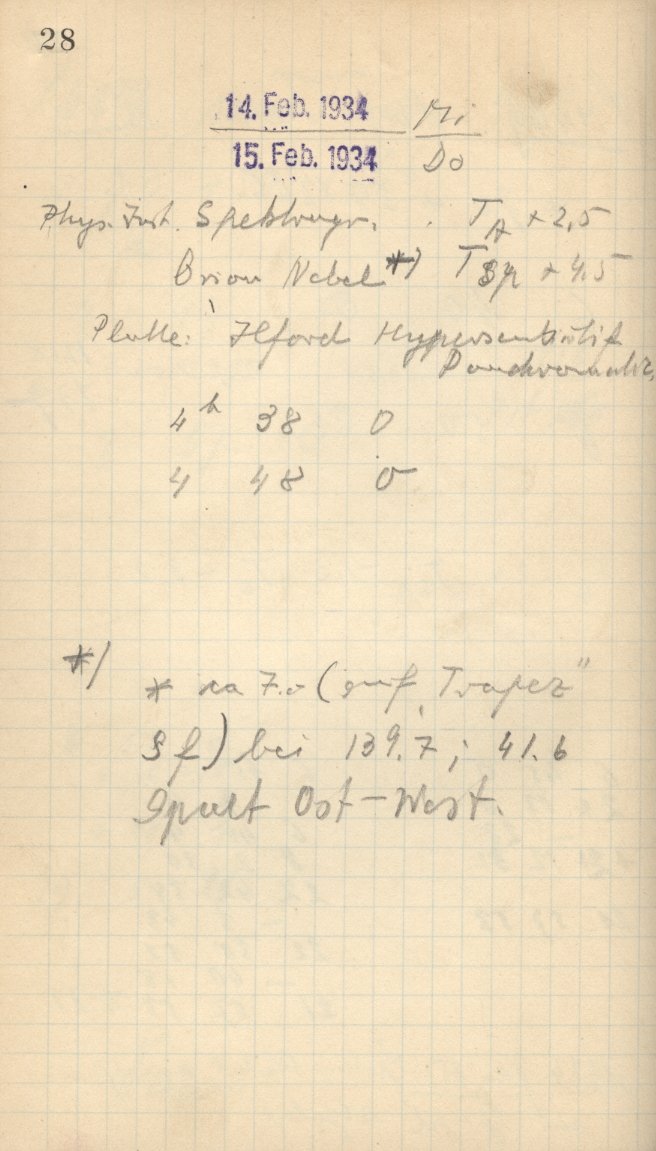 28
14. Feb. 1934 Mi
15. Feb. 1934 Do
Phys. Inst. Spektrogr. T_A + 2,5
Orion Nebel *) T_Sp + 4.5
Platte: Ilford Hypersensitif
Panchromatic
4h 38 0
4 48 0
*)
* ca 7.0 ( „Trapez"
sf) bei 139.7; 41.6
Spalt Ost-West.